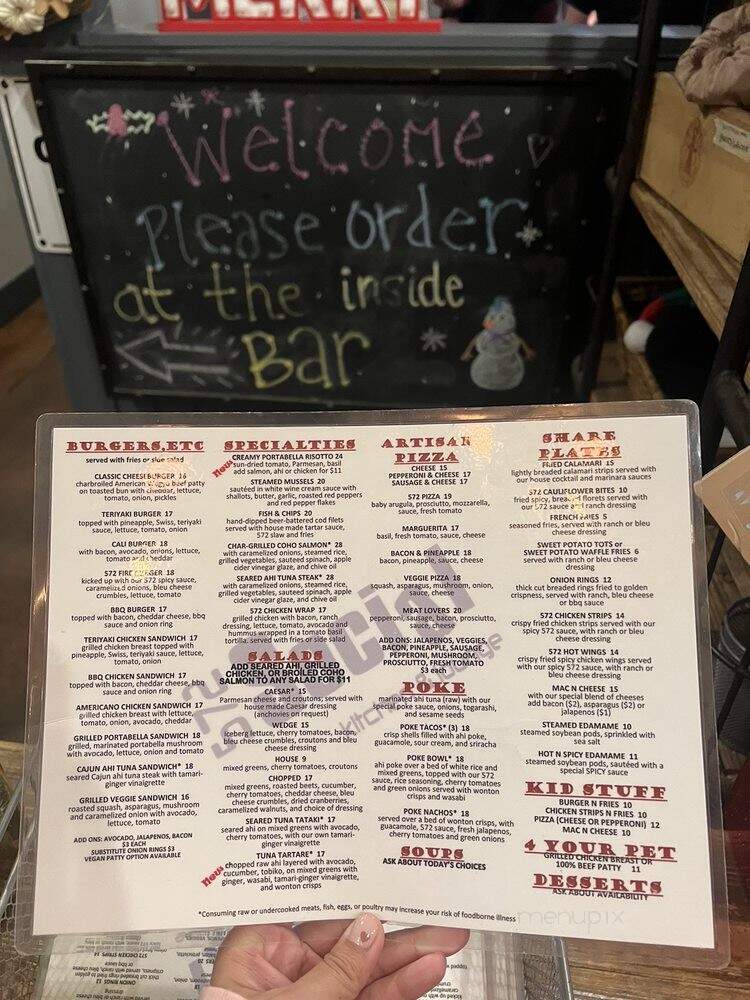 MERRY
Welcome
Please order
at the inside
Bar
BURGERS,ETC
served with fries or side salad
CLASSIC CHEESEBURGER 16
charbroiled American Wagyu beef patty
on toasted bun with cheddar, lettuce,
tomato, onion, pickles
TERIYAKI BURGER 17
topped with pineapple, Swiss, teriyaki
sauce, lettuce, tomato, onion
CALI BURGER 18
with bacon, avocado, onions, lettuce,
tomato and cheddar
572 FIRE BURGER 18
kicked up with our 572 spicy sauce,
caramelized onions, bleu cheese
crumbles, lettuce, tomato
BBQ BURGER 17
topped with bacon, cheddar cheese, bbq
sauce and onion ring
TERIYAKI CHICKEN SANDWICH 17
grilled chicken breast topped with
pineapple, Swiss, teriyaki sauce, lettuce,
tomato, onion
BBQ CHICKEN SANDWICH 17
topped with bacon, cheddar cheese, bbq
sauce and onion ring
AMERICANO CHICKEN SANDWICH 17
grilled chicken breast with lettuce,
tomato, onion, avocado, cheddar
GRILLED PORTABELLA SANDWICH 18
grilled, marinated portabella mushroom
with avocado, lettuce, onion and tomato
CAJUN AHI TUNA SANDWICH* 18
seared Cajun ahi tuna steak with tamari-
ginger vinaigrette
GRILLED VEGGIE SANDWICH 16
roasted squash, asparagus, mushroom
and caramelized onion with avocado,
lettuce, tomato
ADD ONS: AVOCADO, JALAPENOS, BACON
$3 EACH
SUBSTITUTE ONION RINGS $3
VEGAN PATTY OPTION AVAILABLE
SPECIALTIES
New
CREAMY PORTABELLA RISOTTO 24
sun-dried tomato, Parmesan, basil
add salmon, ahi or chicken for $11
STEAMED MUSSELS 20
sautéed in white wine cream sauce with
shallots, butter, garlic, roasted red peppers
and red pepper flakes
FISH & CHIPS 20
hand-dipped beer-battered cod filets
served with house made tartar sauce,
572 slaw and fries
CHAR-GRILLED COHO SALMON* 28
with caramelized onions, steamed rice,
grilled vegetables, sauteed spinach, apple
cider vinegar glaze, and chive oil
SEARED AHI TUNA STEAK* 28
with caramelized onions, steamed rice,
grilled vegetables, sauteed spinach, apple
cider vinegar glaze, and chive oil
572 CHICKEN WRAP 17
grilled chicken with bacon, ranch
dressing, lettuce, tomato, avocado and
hummus wrapped in a tomato basil
tortilla. served with fries or side salad
SALADS
ADD SEARED AHI, GRILLED
CHICKEN, OR BROILED COHO
SALMON TO ANY SALAD FOR $11
CAESAR* 15
Parmesan cheese and croutons; served with
house made Caesar dressing
(anchovies on request)
WEDGE 15
iceberg lettuce, cherry tomatoes, bacon,
bleu cheese crumbles, croutons and bleu
cheese dressing
HOUSE 9
mixed greens, cherry tomatoes, croutons
CHOPPED 17
mixed greens, roasted beets, cucumber,
cherry tomatoes, cheddar cheese, bleu
cheese crumbles, dried cranberries,
caramelized walnuts, and choice of dressing
SEARED TUNA TATAKI* 17
seared ahi on mixed greens with avocado,
cherry tomatoes, with our own tamari-
ginger vinaigrette
New
TUNA TARTARE* 17
chopped raw ahi layered with avocado,
cucumber, tobiko, on mixed greens with
ginger, wasabi, tamari-ginger vinaigrette,
and wonton crisps
ARTISAN
PIZZA
CHEESE 15
PEPPERONI & CHEESE 17
SAUSAGE & CHEESE 17
572 PIZZA 19
baby arugula, prosciutto, mozzarella,
sauce, fresh tomato
MARGUERITA 17
basil, fresh tomato, sauce, cheese
BACON & PINEAPPLE 18
bacon, pineapple, sauce, cheese
VEGGIE PIZZA 18
squash, asparagus, mushroom, onion,
sauce, cheese
MEAT LOVERS 20
pepperoni, sausage, bacon, prosciutto,
sauce, cheese
ADD ONS: JALAPENOS, VEGGIES,
BACON, PINEAPPLE, SAUSAGE,
PEPPERONI, MUSHROOM,
PROSCIUTTO, FRESH TOMATO
$3 each
POKE
marinated ahi tuna (raw) with our
special poke sauce, onions, togarashi,
and sesame seeds
POKE TACOS* (3) 18
crisp shells filled with ahi poke,
guacamole, sour cream, and sriracha
POKE BOWL* 18
ahi poke over a bed of white rice and
mixed greens, topped with our 572
sauce, rice seasoning, cherry tomatoes
and green onions served with wonton
crisps and wasabi
POKE NACHOS* 18
served over a bed of wonton crisps, with
guacamole, 572 sauce, fresh jalapenos,
cherry tomatoes and green onions
SOUPS
ASK ABOUT TODAY'S CHOICES
SHARE
PLATES
FRIED CALAMARI 15
lightly breaded calamari strips served with
our house cocktail and marinara sauces
572 CAULIFLOWER BITES 10
fried spicy, breaded florets served with
our 572 sauce and ranch dressing
FRENCH FRIES 5
seasoned fries, served with ranch or bleu
cheese dressing
SWEET POTATO TOTS or
SWEET POTATO WAFFLE FRIES 6
served with ranch or bleu cheese
dressing
ONION RINGS 12
thick cut breaded rings fried to golden
crispness, served with ranch, bleu cheese
or bbq sauce
572 CHICKEN STRIPS 14
crispy fried chicken strips served with our
spicy 572 sauce, with ranch or bleu
cheese dressing
572 HOT WINGS 14
crispy fried spicy chicken wings served
with our spicy 572 sauce, with ranch or
bleu cheese dressing
MAC N CHEESE 15
with our special blend of cheeses
add bacon ($2), asparagus ($2) or
jalapenos ($1)
STEAMED EDAMAME 10
steamed soybean pods, sprinkled with
sea salt
HOT N SPICY EDAMAME 11
steamed soybean pods, sautéed with a
special SPICY sauce
KID STUFF
BURGER N FRIES 10
CHICKEN STRIPS N FRIES 10
PIZZA (CHEESE OR PEPPERONI) 12
MAC N CHEESE 10
4 YOUR PET
GRILLED CHICKEN BREAST OR
100% BEEF PATTY 11
DESSERTS
ASK ABOUT AVAILABILITY
*Consuming raw or undercooked meats, fish, eggs, or poultry may increase your risk of foodborne illness
menupix